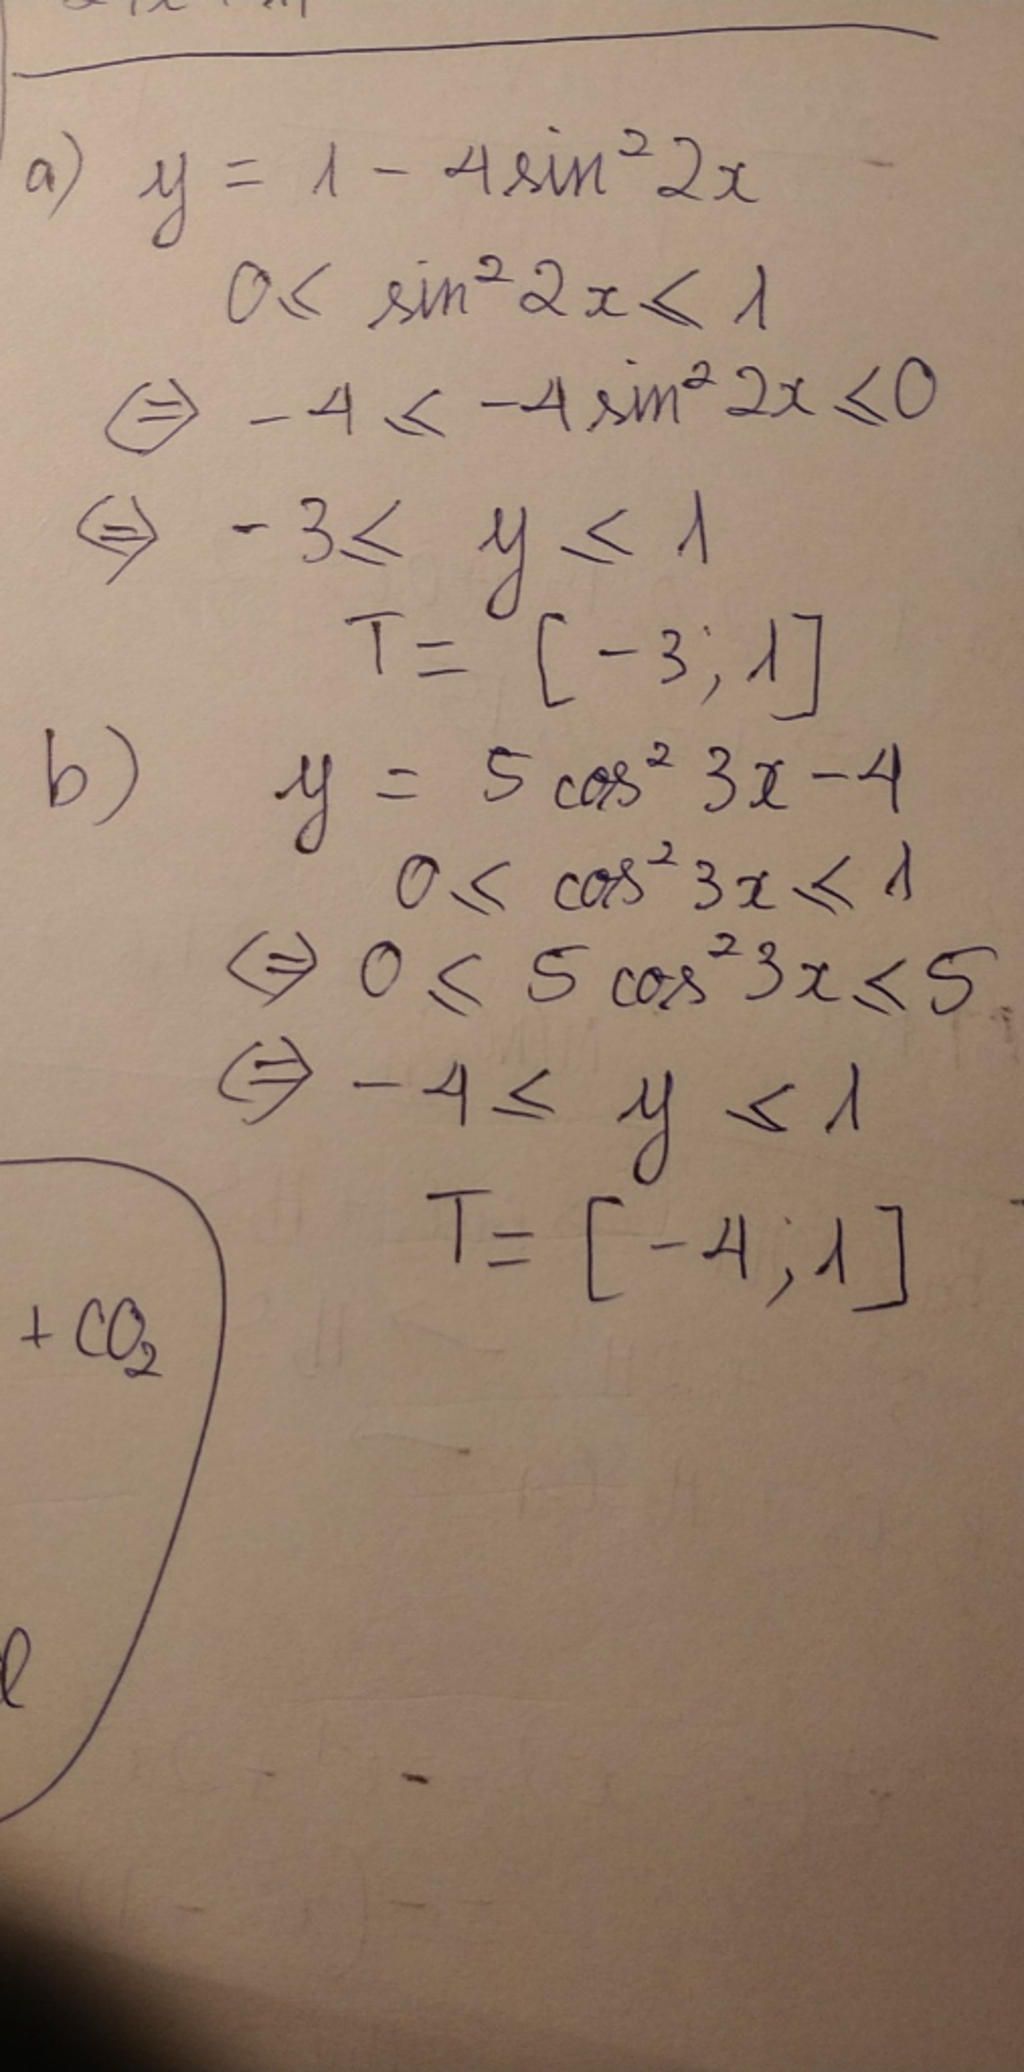 a) y = 1 - 4sin² 2x
0 ≤ sin² 2x ≤ 1
⇔ -4 ≤ -4 sin² 2x ≤ 0
⇔ -3 ≤ y ≤ 1
T = [-3; 1]
b) y = 5 cos² 3x - 4
0 ≤ cos² 3x ≤ 1
⇔ 0 ≤ 5 cos² 3x ≤ 5
⇔ -4 ≤ y ≤ 1
T = [-4; 1]
+ CO₂